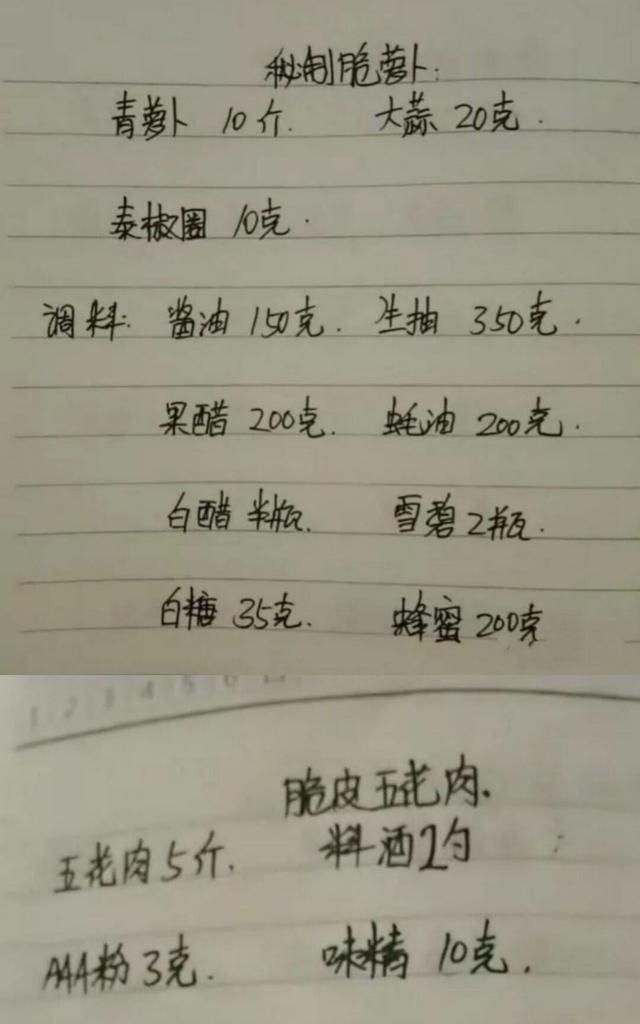 秘制脆萝卜:
青萝卜 10斤. 大蒜 20克.
泰椒圈 10克.
调料: 酱油 150克. 生抽 350克.
果醋 200克. 蚝油 200克.
白醋 半瓶. 雪碧 2瓶.
白糖 35克. 蜂蜜 200克
1 2 3 4 5 6
脆皮五花肉.
五花肉 5斤. 料酒 2勺
AAA粉 3克. 味精 10克.